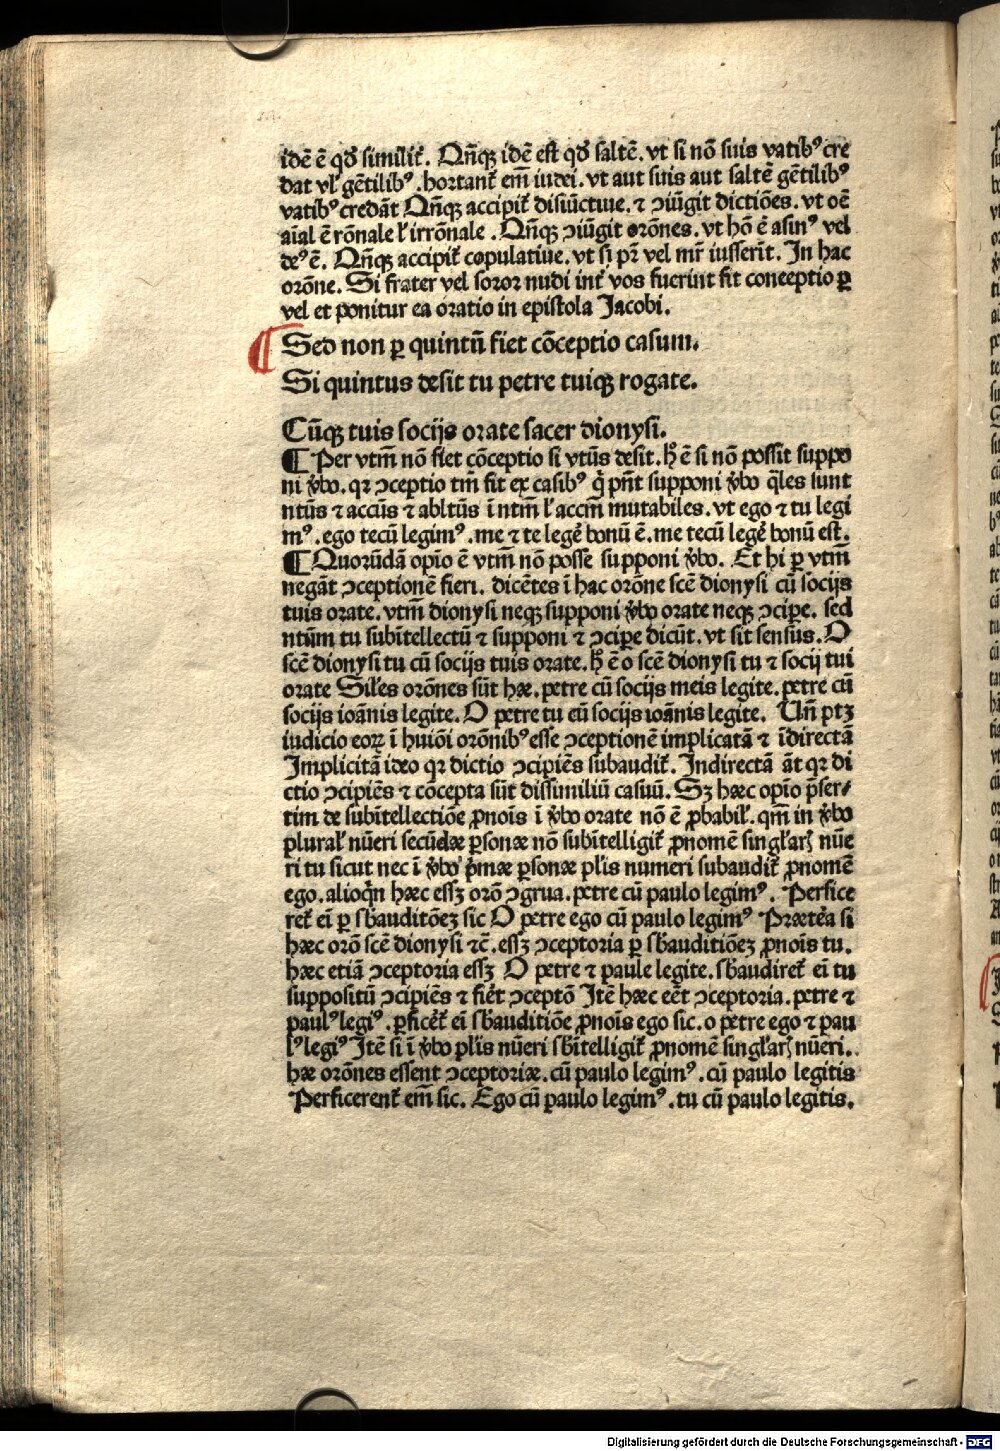 idē ē qď similiť. Qñq̃ idē est qď saltē. vt si nō suis vatibꝰ cre
dat vľ gētilibꝰ. hortanť em̄ iudei. vt aut suis aut saltē gētilibꝰ
vatibꝰ credāt Qñq̃ accipiť disiūctiue. ⁊ ↄiūgit dictiōes. vt oē
aīal ē rōnale ľ irrōnale. Qñq̃ ↄiūgit orōnes. vt hō ē asinꝰ vel
deꝰ ē. Qñq̃ accipiť copulatiue. vt si pr̄ vel mr̄ iusserīt. In hac
orōne. Si frater vel soror nudi inť vos fuerint fit conceptio ꝑ
vel et ponitur ea oratio in epistola Jacobi.
¶ Sed non ꝑ quintū fiet cōceptio casum.
Si quintus desit tu petre tuiq̃ rogate.
Cūq̃ tuis socijs orate sacer dionysi.
¶ Per vtm̄ nō fiet cōceptio si vtūs desit. ħ ē si nō possit suppo
ni v̄bo. qꝛ ↄceptio tm̄ fit ex casibꝰ q̇ pn̄t supponi v̄bo q̄les sunt
ntūs ⁊ accūs ⁊ abltūs ī ntm̄ ľ accm̄ mutabiles. vt ego ⁊ tu legi
mꝰ. ego tecū legimꝰ. me ⁊ te legeř bonū ē. me tecū legeř bonū est.
¶ Quorūdā opīo ē vtm̄ nō posse supponi v̄bo. Et hi ꝑ vtm̄
negāt ↄceptionē fieri. dicētes ī hac orōne scē dionysi cū socijs
tuis orate. vtm̄ dionysi neq̃ supponi v̄bo orate neq̃ ↄciꝑe. sed
ntūm tu subītellectū ⁊ supponi ⁊ ↄciꝑe dicūt. vt sit sensus. O
scē dionysi tu cū socijs tuis orate. ħ ē o scē dionysi tu ⁊ socij tui
orate Siľes orōnes sūt hæ. petre cū socijs meis legite. petre cū
socijs ioānis legite. O petre tu cū socijs ioānis legite. Uñ ptꝫ
iudicio eoꝝ ī huiōi orōnibꝰ esse ↄceptionē implicatā ⁊ īdirectā
Implicitā ideo qꝛ dictio ↄcipiēs subaudiť. Indirectā āt qꝛ di
ctio ↄcipiēs ⁊ cōcepta sūt dissimiliū casuū. Sꝫ hæc opīo p̄ser⸗
tim de subītellectiōe ꝓnoīs ī v̄bo orate nō ē ꝓbabiľ. qm̄ in v̄bo
pluraľ nūeri secūdæ ꝑsonæ nō subītelligiť ꝓnomē singľarꝭ nūe
ri tu sicut nec ī v̄bo p̄mæ ꝑsonæ pľis numeri subaudiť ꝓnomē
ego. alioq̄n hæc essꝫ orō ↄgrua. petre cū paulo legimꝰ. Perfice
reť eī ꝑ sƀauditōeꝫ sic O petre ego cū paulo legimꝰ Prætēa si
hæc orō scē dionysi ⁊c̄. essꝫ ↄceptoria ꝑ sƀauditiōeꝫ ꝓnoīs tu.
hæc etiā ↄceptoria essꝫ O petre ⁊ paule legite. sƀaudireť eī tu
suppositū ↄcipiēs ⁊ fieřt ↄceptō Itē hæc eēt ↄceptoria. petre ⁊
paulꝰ legiꝰ. ꝑficeřť eī sƀauditiōe ꝓnoīs ego sic. o petre ego ⁊ pau
lꝰ legiꝰ Itē si ī v̄bo pľis nūeri sƀītelligiť ꝓnomē singľarꝭ nūeri.
hæ orōnes essent ↄceptoriæ. cū paulo legimꝰ. cū paulo legitis
Perficerenť em̄ sic. Ego cū paulo legimꝰ. tu cū paulo legitis.
Digitalisierung gefördert durch die Deutsche Forschungsgemeinschaft - DFG